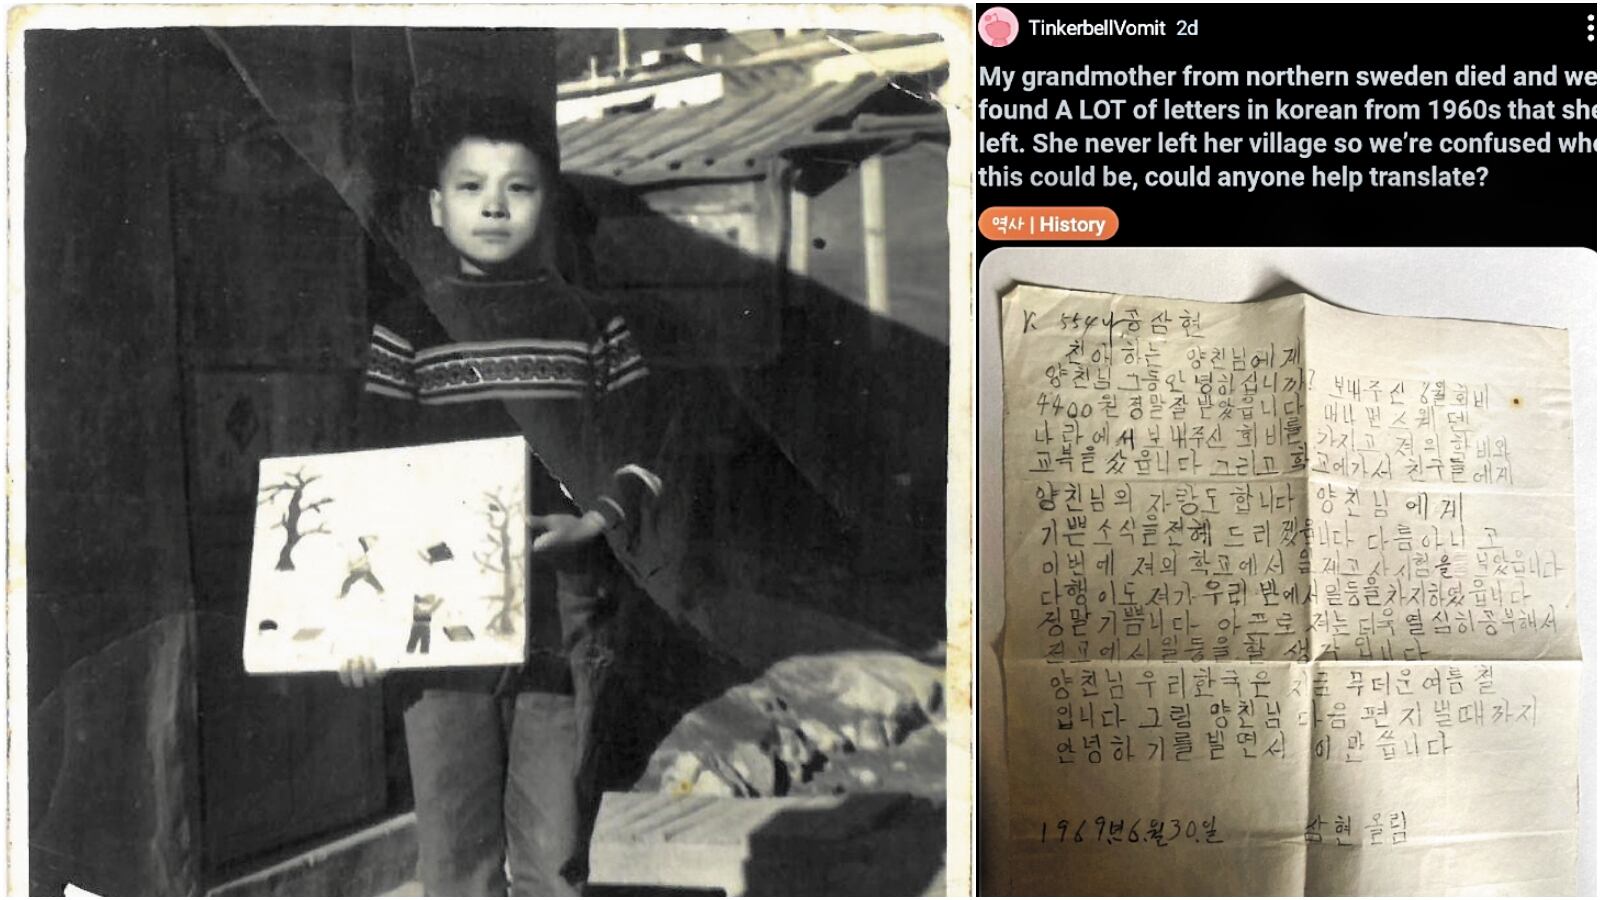 TinkerbellVomit 2d
My grandmother from northern sweden died and we
found A LOT of letters in korean from 1960s that she
left. She never left her village so we're confused who
this could be, could anyone help translate?
역사 | History
K. 554 공삼현
친애하는 양친님에게
양친님 그동안 녕하십니까? 보내주신 6월 회비
4400원 정말 잘 받았읍니다 머나먼 스웨덴
나란에서 보내주신 회비를 가지고 져의 학비와
교복을 샀읍니다 그리고 학교에가서 친구들에게
양친님의 자랑도 합니다 양친님에게
기쁜 소식을 전혜 드리겠읍니다 다름아니고
이번에 져의 학교에서 시험을 보았읍니다
다행이도 져가 우리 반에서 일등을 차지하였읍니다
정말 기쁩니다 아프로 져는 더욱 열심히 공부해서
전교에서 일등을 할 생각입니다
양친님 우리한국은 지금 무더운 여름철
입니다 그럼 양친님 다음 편지 낼때까지
안녕하기를 빌면서 이만 씁니다
1969년 6월 30일 삼현 올림